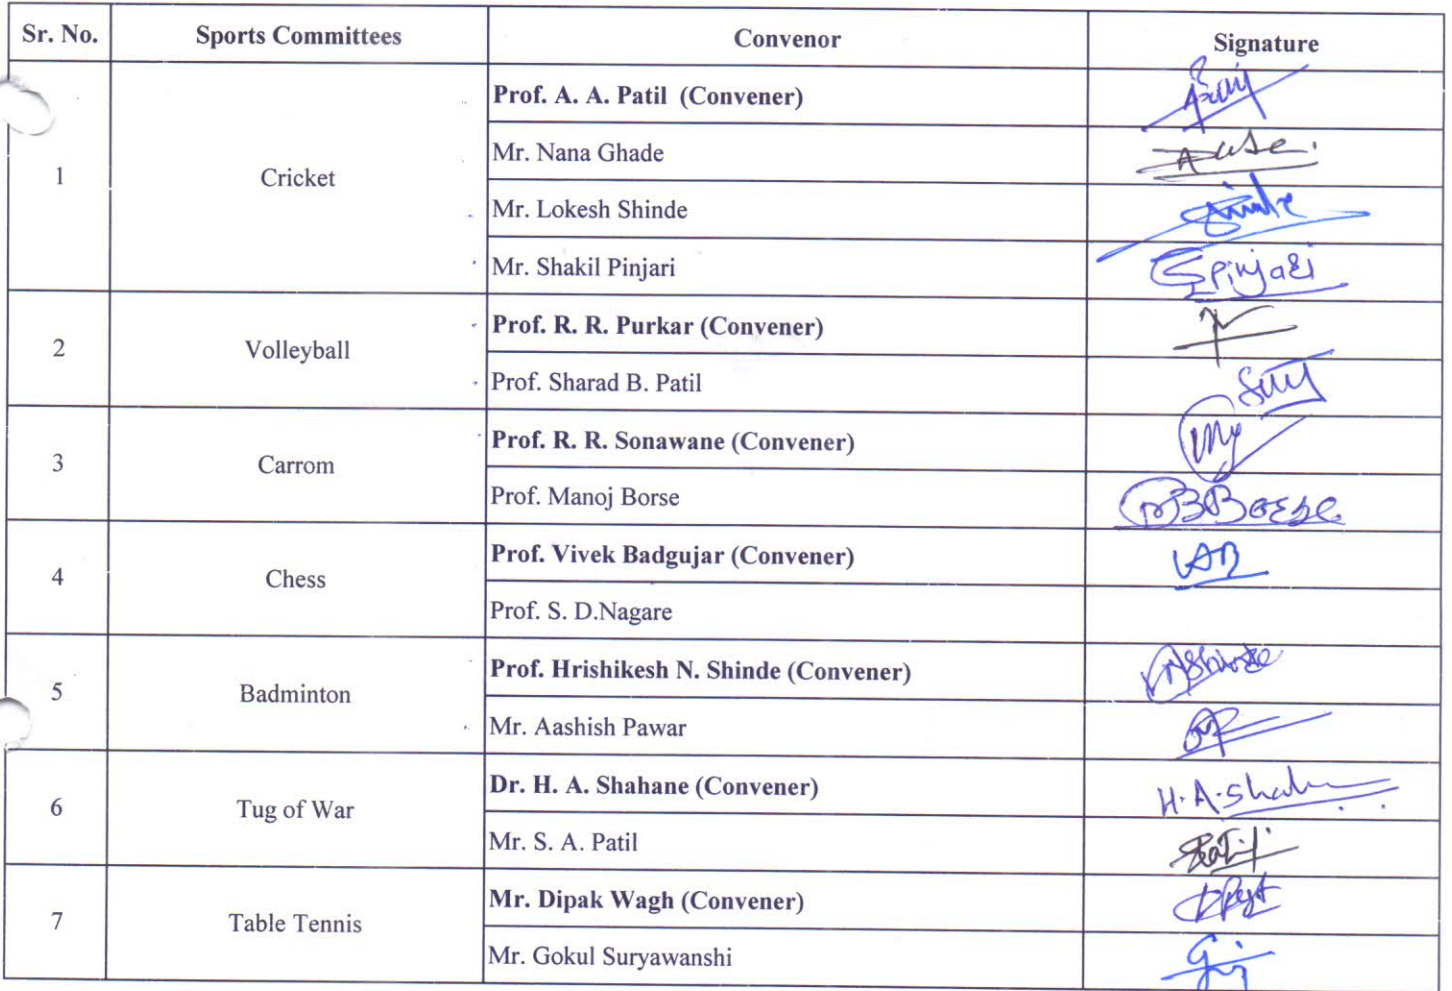 Sr. No. Sports Committees Convenor Signature
Prof. A. A. Patil (Convener)
1 Cricket
Mr. Nana Ghade
Mr. Lokesh Shinde
Mr. Shakil Pinjari SPinjari
2 Volleyball
Prof. R. R. Purkar (Convener)
Prof. Sharad B. Patil
3 Carrom
Prof. R. R. Sonawane (Convener)
Prof. Manoj Borse
4 Chess
Prof. Vivek Badgujar (Convener)
Prof. S. D.Nagare
5 Badminton
Prof. Hrishikesh N. Shinde (Convener)
Mr. Aashish Pawar
6 Tug of War
Dr. H. A. Shahane (Convener)
Mr. S. A. Patil
7 Table Tennis
Mr. Dipak Wagh (Convener)
Mr. Gokul Suryawanshi